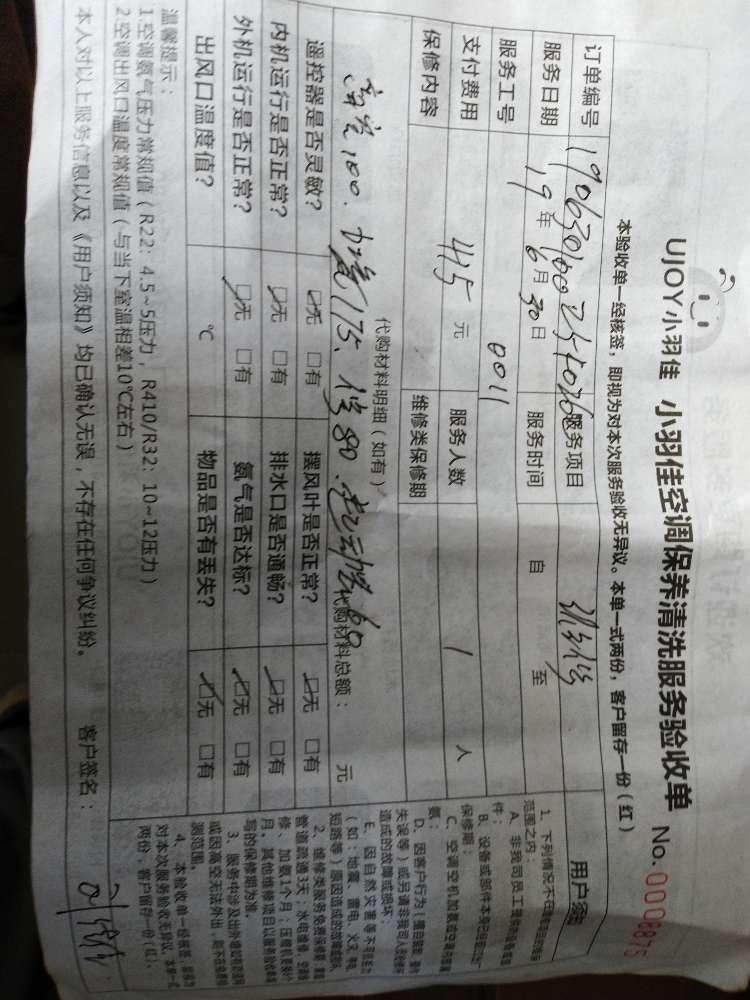 UJOY小羽佳 小羽佳空调保养清洗服务验收单 No. 0008875
本验收单一经核签，即视为对本次服务验收无异议。本单一式两份，客户留存一份（红）
订单编号 服务项目
服务日期 19年6月30日 服务时间 自 至
服务工号 0011
支付费用 445 元 服务人数 1 人
保修内容 维修类保修期
代购材料明细（如有）
高空100. 175. 80. 60 代购材料总额： 元
遥控器是否灵敏？ 无 有 摆风叶是否正常？ 无 有
内机运行是否正常？ 无 有 排水口是否通畅？ 无 有
外机运行是否正常？ 无 有 氨气是否达标？ 无 有
出风口温度值？ ℃ 物品是否有丢失？ 无 有
温馨提示：
1.空调氨气压力常规值（R22：4.5~5压力，R410/R32：10~12压力）
2.空调出风口温度常规值（与当下室温相差10℃左右）
本人对以上服务信息以及《用户须知》均已确认无误，不存在任何争议纠纷。 客户签名：
用户须知
1、下列情况不在
范围之内：
A、非我司员工
件；
B、设备或部件本身已
保修期；
C、空调空机加氨或空调内
氨；
D、因客户行为（擅自
失误等）或另请非我司人员
造成的故障或损坏；
E、因自然灾害等不可抗力
（如：地震、雷电、火灾、
短路等）原因造成的故障
2、维修类服务免费保修期：
管道疏通3天；水电维修、
修、加氨1个月；压缩机
月。其他维修项目以服务验收单
写的保修期为准。
3、服务中涉及出外墙
或因高空无法外出，则不在
测范围。
4、本验收单一经核签，即视为
对本次服务验收无异议。本单一式
两份，客户留存一份（红）。